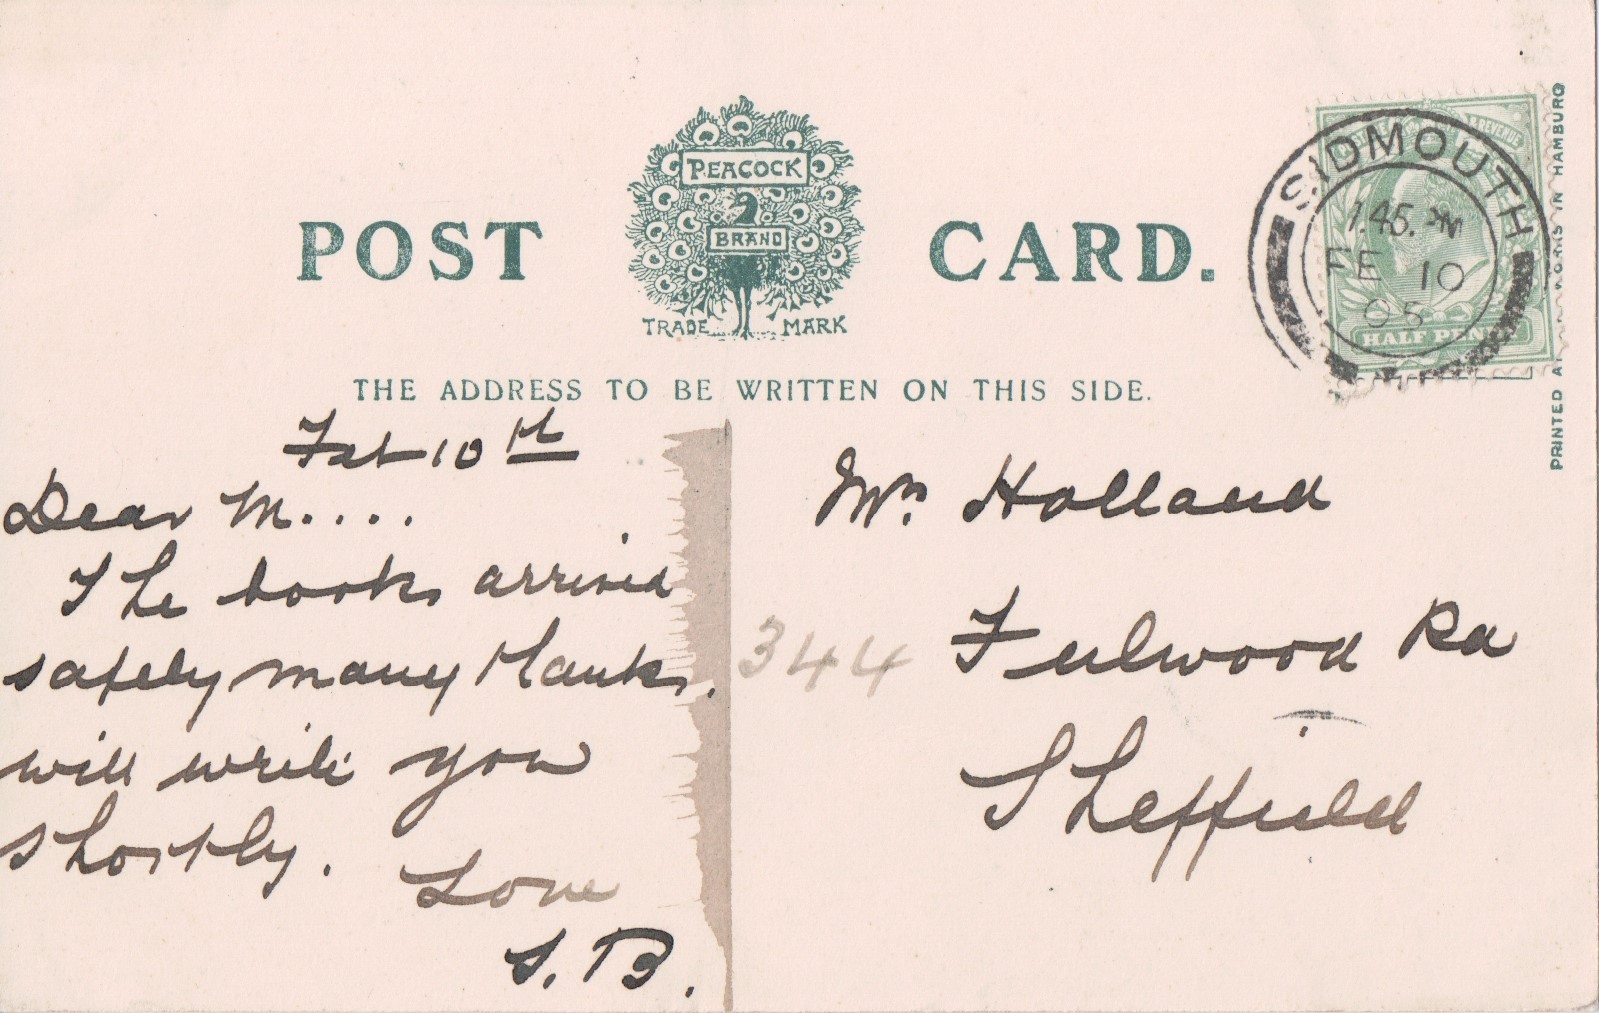 POST CARD.
PEACOCK
BRAND
TRADE MARK
THE ADDRESS TO BE WRITTEN ON THIS SIDE.
REVENUE
HALF PENNY
SIDMOUTH
1.45. PM
FE 10
05
PRINTED AT WORKS IN HAMBURG
Feb 10th
Dear M....
The books arrived
safely many thanks.
will write you
shortly.
Love
S. B.
Mrs. Holland
344 Fulwood Rd
Sheffield